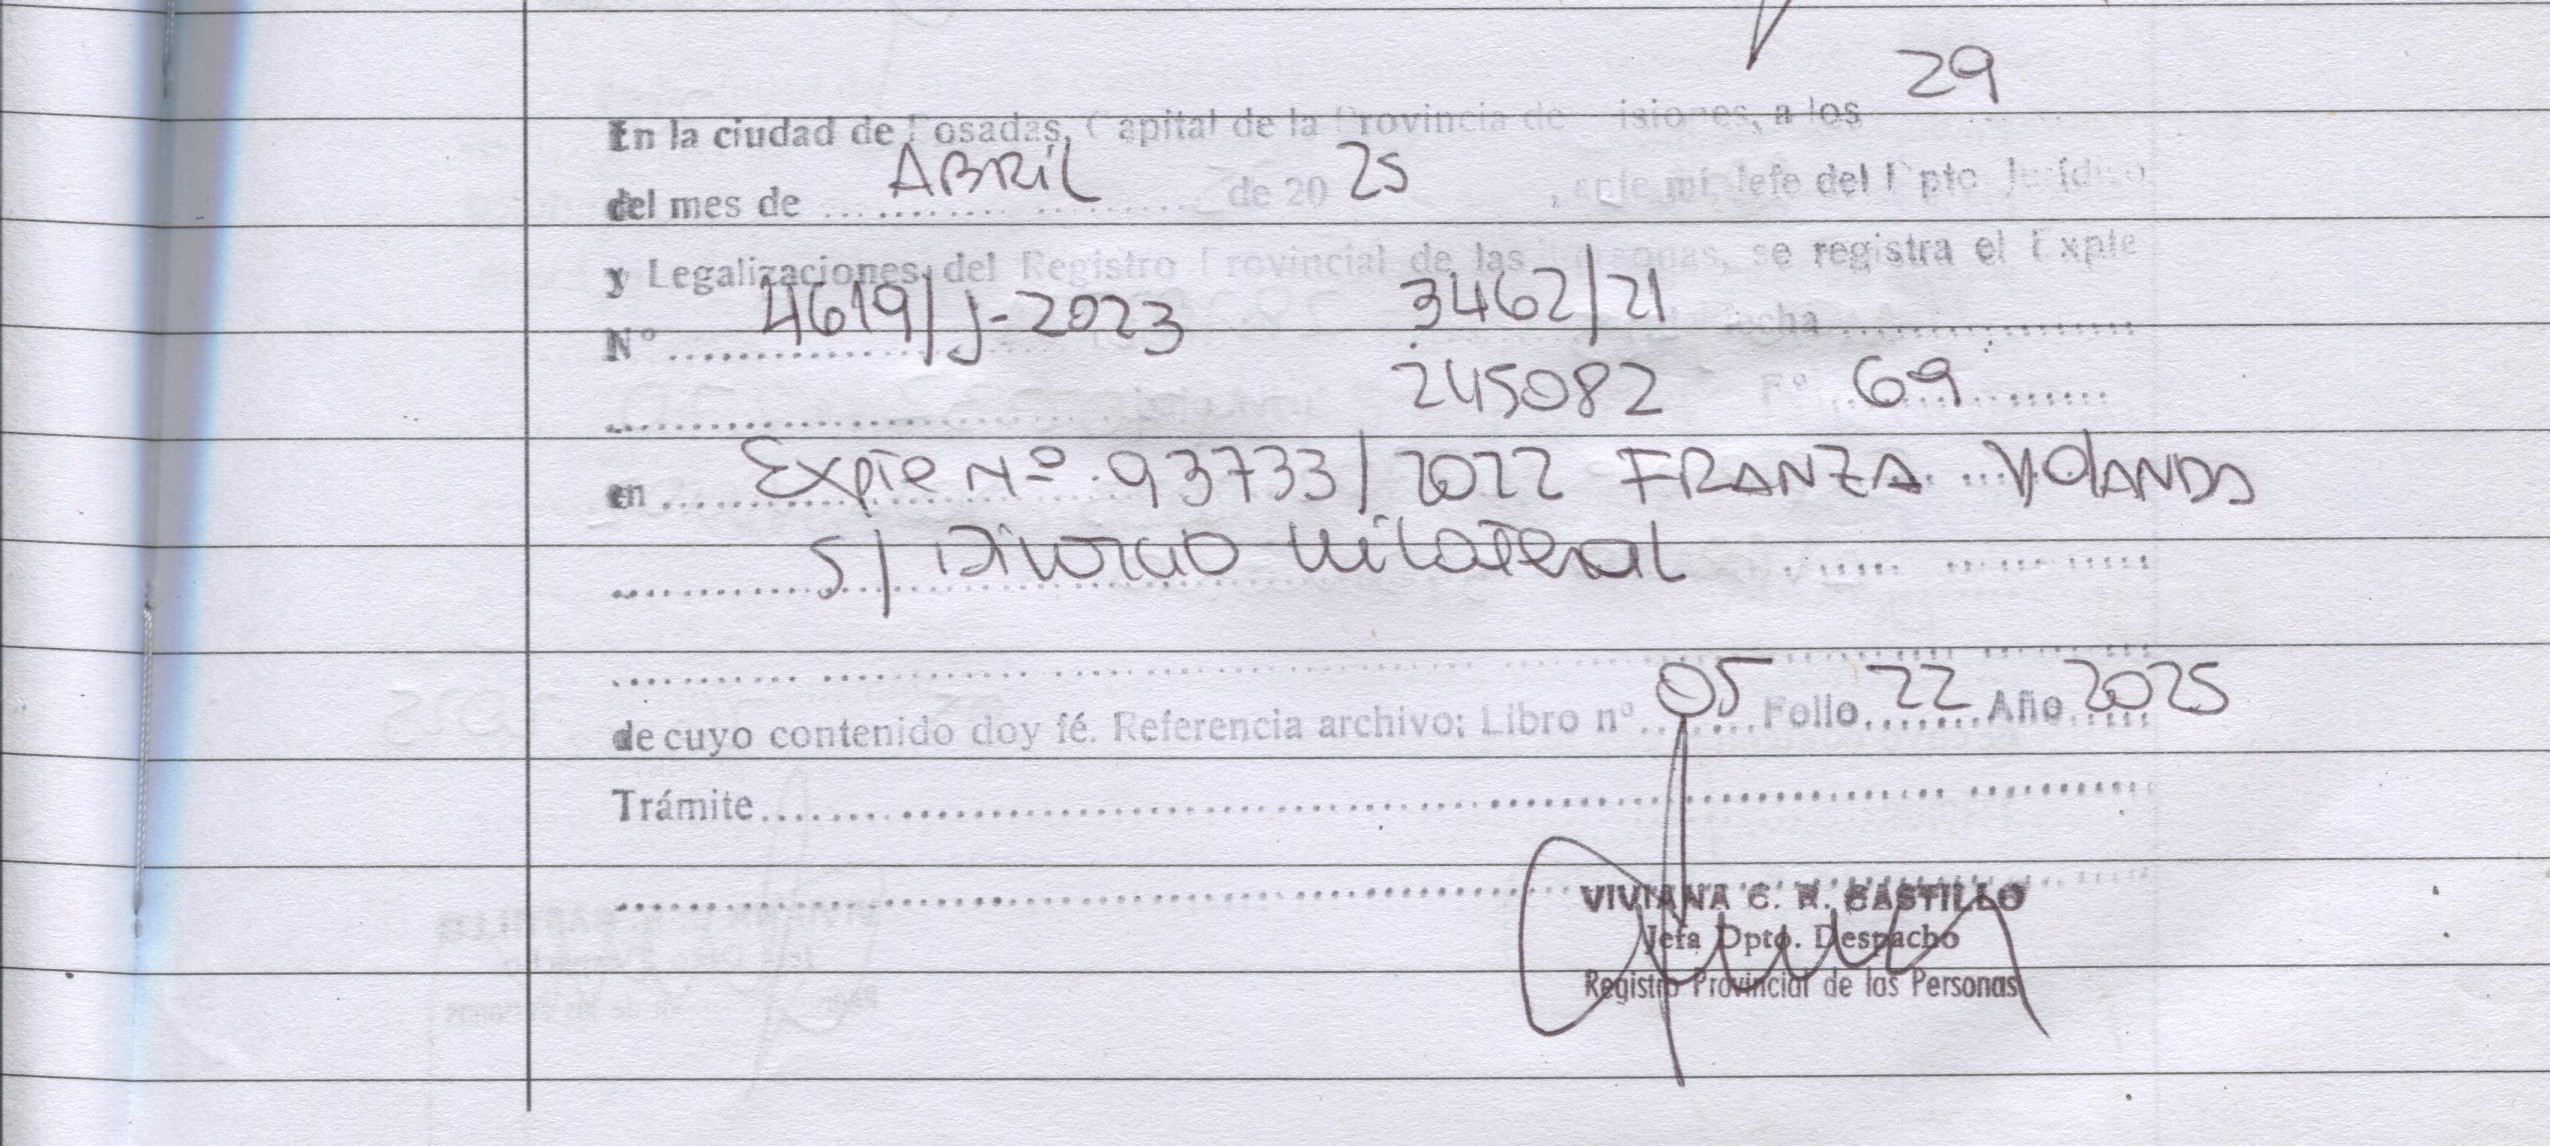 29
En la ciudad de Posadas, Capital de la Provincia de Misiones, a los
del mes de ABRIL de 20 25, ante mí, Jefe del Dpto Jurídico
y Legalizaciones, del Registro Provincial de las Personas, se registra el Expte
Nº 4619/J-2023 3462/21 Fecha
245082 Fº 69
en Expte Nº 93733/2022 FRANZA YOLANDA
S/ Divorcio Unilateral
de cuyo contenido doy fé. Referencia archivo: Libro nº 05 Folio 22 Año 2025
Trámite
VIVIANA C. R. CASTILLO
Jefa Dpto. Despacho
Registro Provincial de las Personas